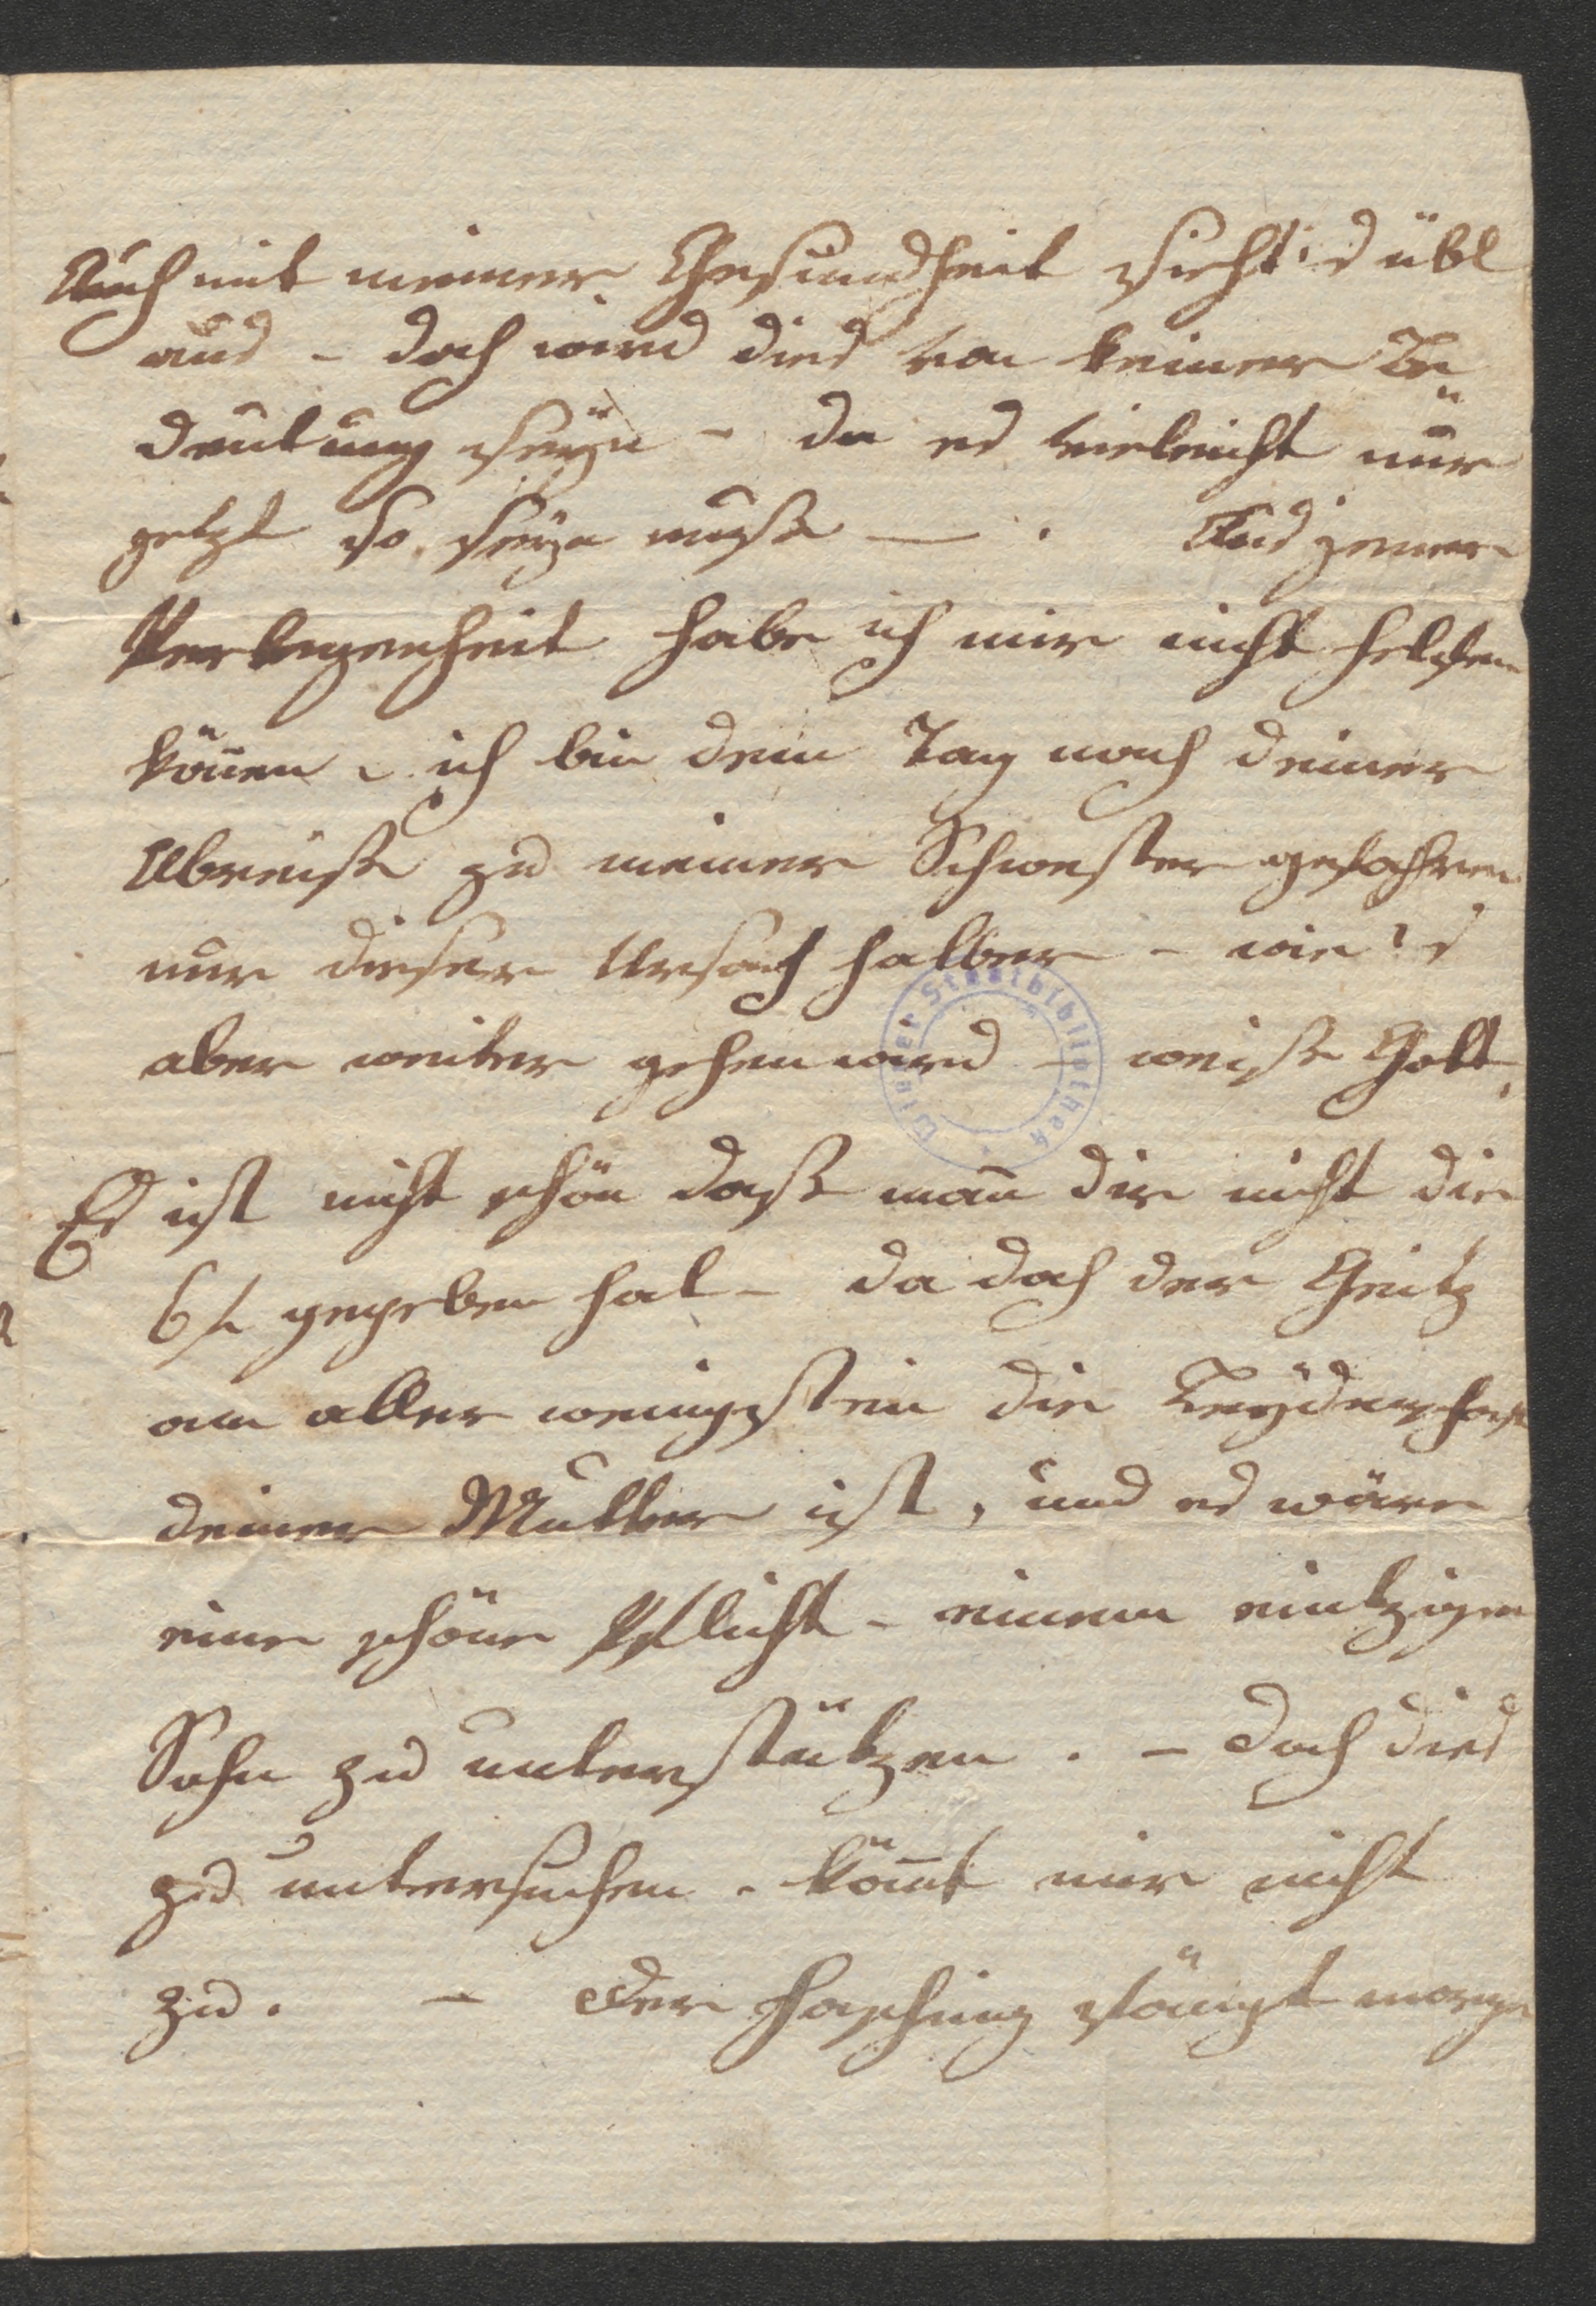 Auch mit meiner Gesundheit sieht's übl
aus – doch wird dies von keiner Be„
deutung seÿn – da es vieleicht nur
jetzt so seÿn muße — . Aus jener
Verlegenheit habe ich mir nicht helfen
kön̄en – ich bin dem Tag nach deiner
Abreiße zu meiner Schwester gefahren
nur dieser Ursach halber – wie's
aber weiter gehen wird – weiße Gott,
Es ist nicht schön daße man̄ dir nicht die
6 f. gegeben hat – da doch der Geitz
am aller wenigstein die Leÿdenschaft
deiner Mutter ist, und es wäre
eine schöne Pflicht – einem eintzigen
Sohn zu unterstützen . – doch dies
zu untersuchen – köm̄t mir nicht
zu . – der Fasching fängt morgen
Wiener Stadtbibliothek